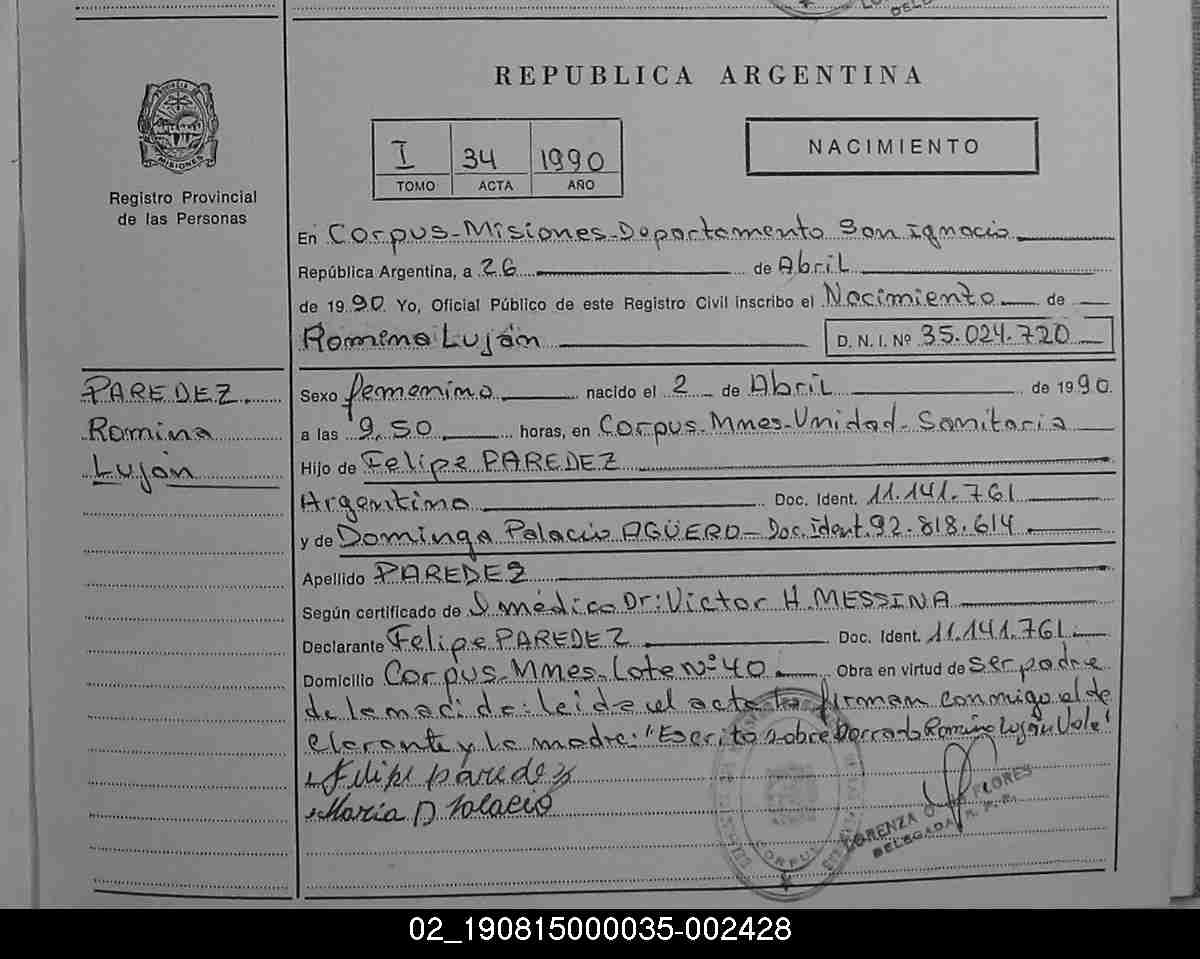 REPUBLICA ARGENTINA
PROVINCIA DE
MISIONES
Registro Provincial
de las Personas
I 34 1990
TOMO ACTA AÑO
NACIMIENTO
En Corpus-Misiones-Departamento San Ignacio
República Argentina, a 26 de Abril
de 1990 Yo, Oficial Público de este Registro Civil inscribo el Nacimiento de
Romina Luján D. N. I. Nº 35.024.720
PAREDEZ
Romina
Luján
Sexo femenino nacido el 2 de Abril de 1990.
a las 9,50 horas, en Corpus-Mnes-Unidad-Sanitaria
Hijo de Felipe PAREDEZ
Argentino Doc. Ident. 11.141.761
y de Dominga Palacio AGÜERO-Doc.Ident.92.818.614
Apellido PAREDEZ
Según certificado de médico Dr: Victor H. MESSINA
Declarante Felipe PAREDEZ Doc. Ident. 11.141.761
Domicilio Corpus-Mnes-Lote Nº 40 Obra en virtud de ser padre
de la nacida: leida el acta la firman conmigo el de
clarante y la madre: "Escrito sobre borrado Romina Luján Vale"
Felipe paredez
Maria D Palacio
CORPUS
LORENZA FLORES
DELEGADA R. P. P.
02_190815000035-002428